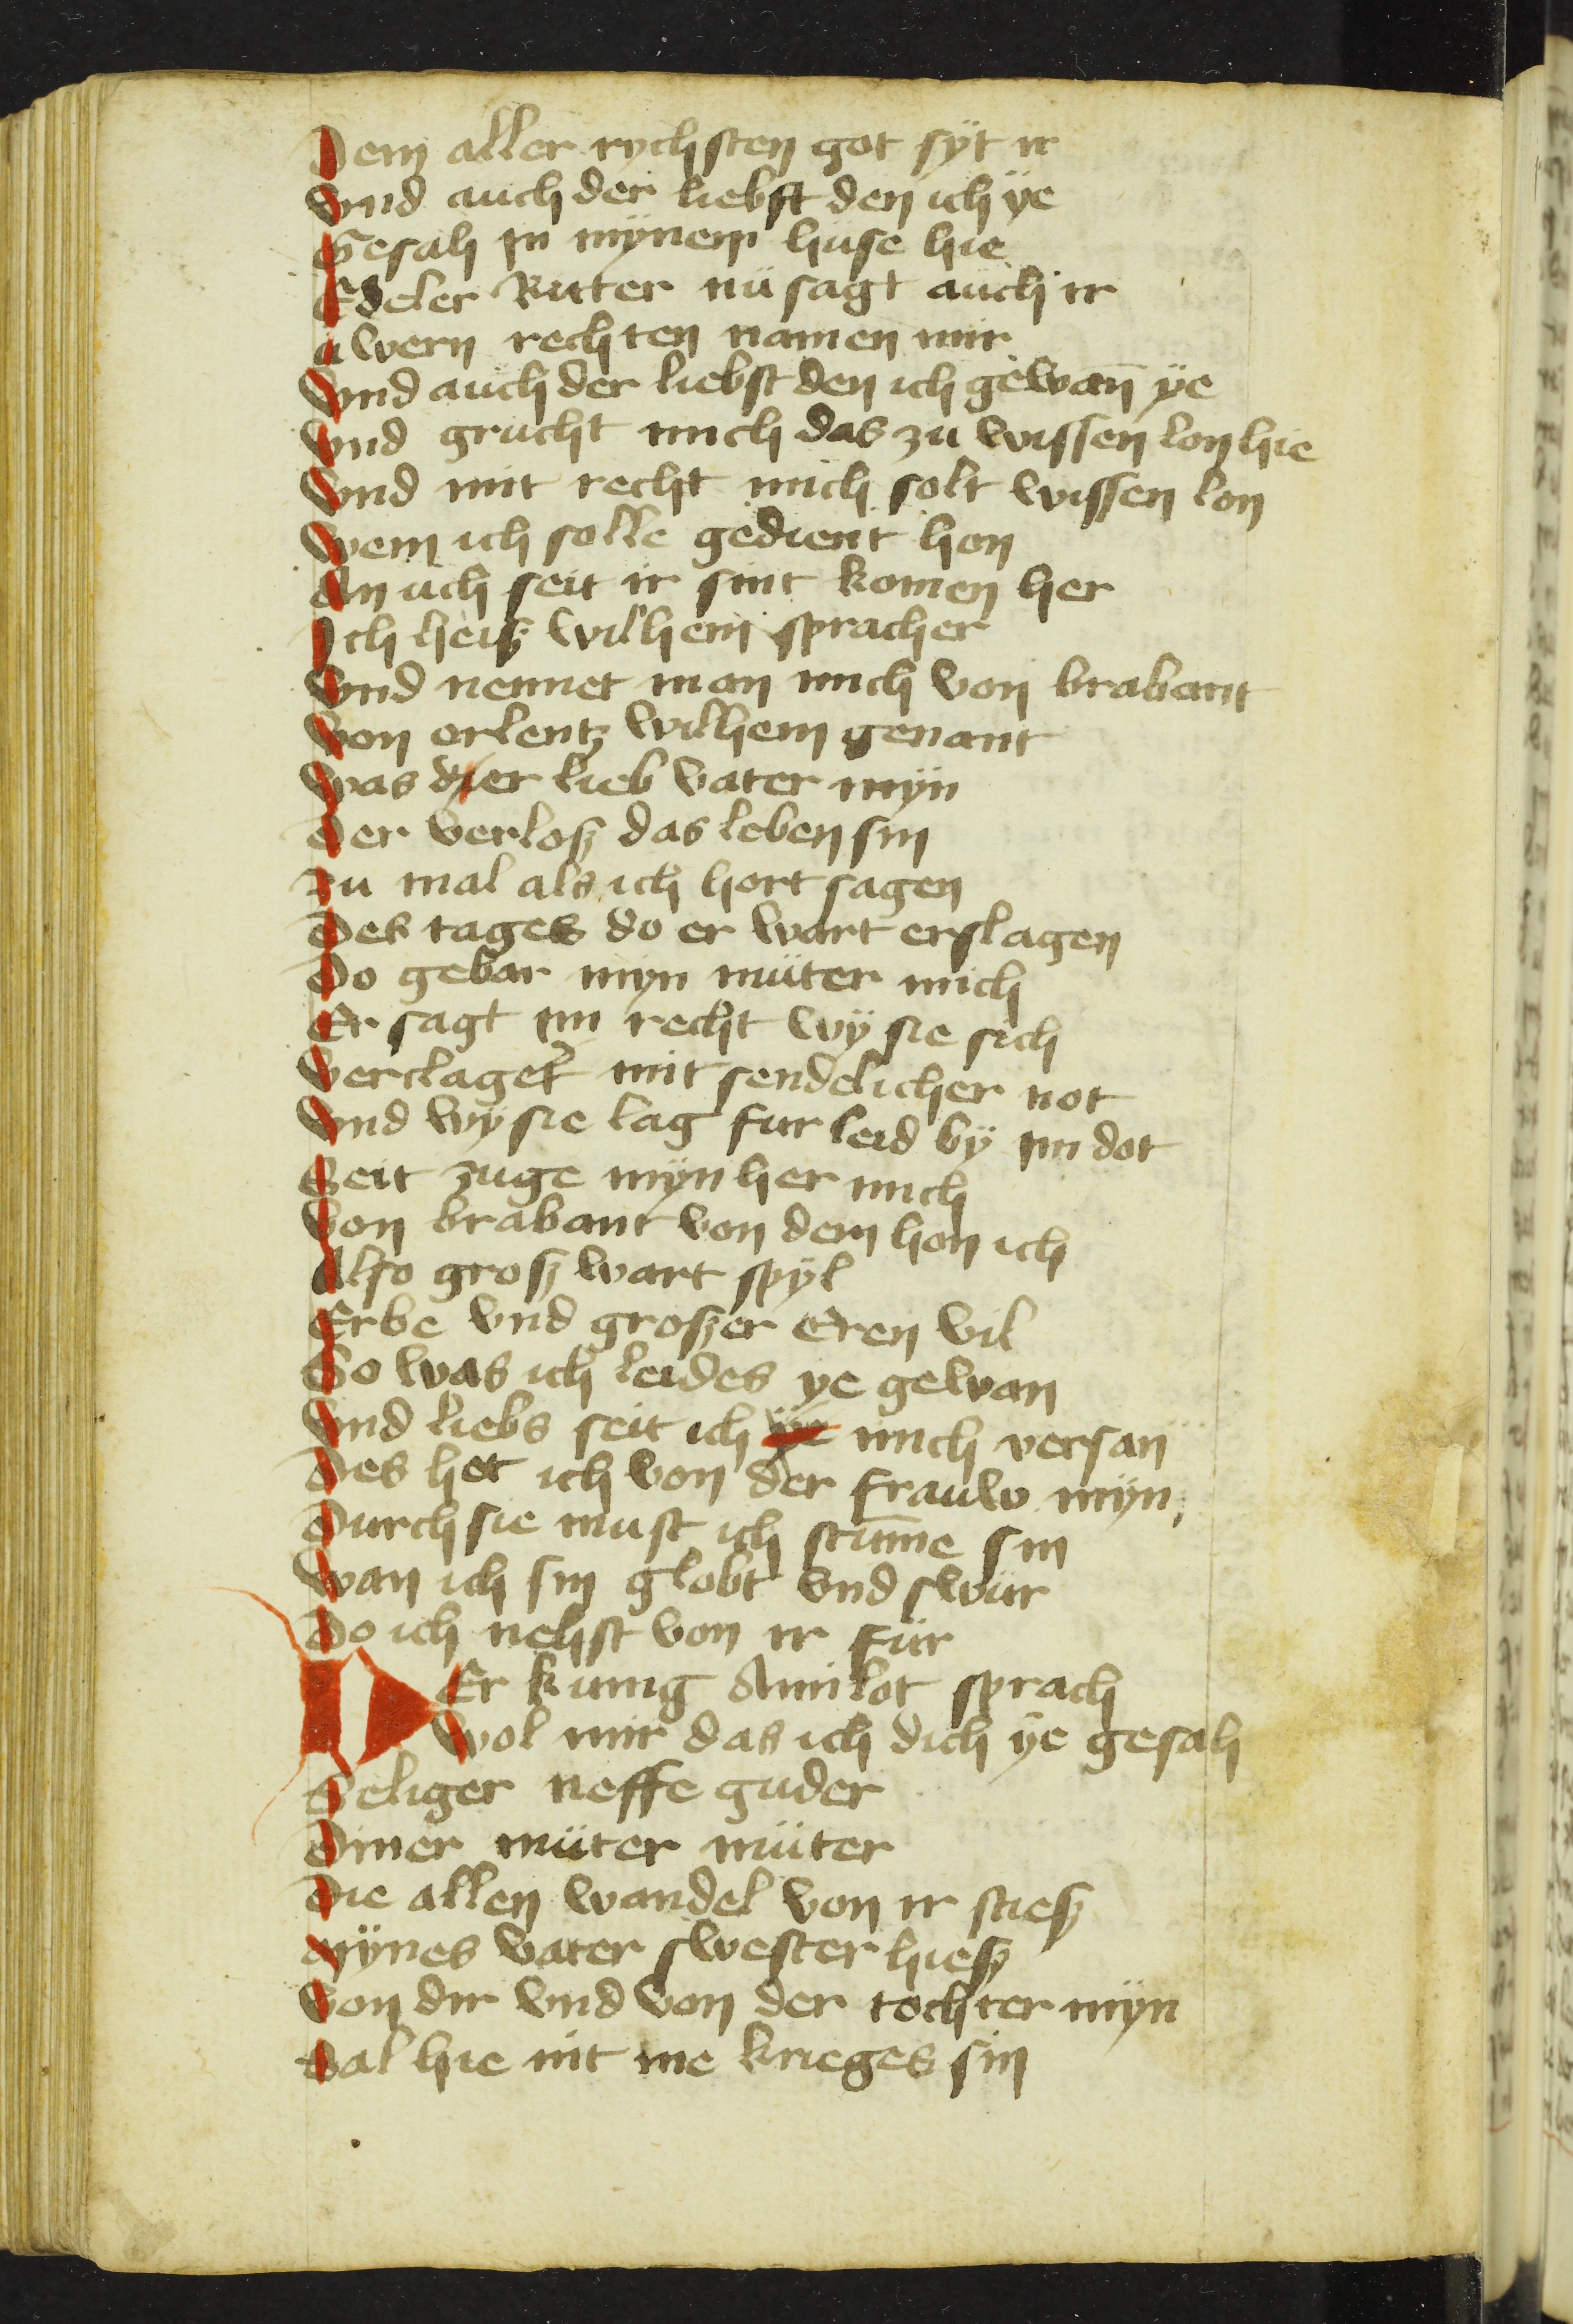 Dem aller rychsten got syt ir
Vnd auch der liebst den ich ÿe
Gesah in mÿnem huse hie
Edeler Ritter nü sagt auch ir
uwern rechten namen mir
Vnd auch der liebst den ich gewan̄ ÿe
Vnd grucht mich das zu wissen lon hie
Vnd mit recht mich solt wissen lon
Wem ich solle gedient hon
An uch seit ir sint komen her
Ich heiß wilhem sprach er
Vnd nennet man mich von brabant
Von orlentz wilhem genant
Was der lieb vater mÿn
Der verloß das leben sin
zu mal als ich hort sagen
Des tages do er wart erslagen
Do gebar myn müter mich
Er sagt im recht wÿ sie sich
Verclaget mit sendelicher not
Vnd wÿ sie lag fur leid bÿ im dot
Seit zuge mÿn her mich
Von brabant von dem hon ich
Also groß wart spÿl
Erbe vnd großer Eren vil
So was ich leides ye gewan
Vnd liebs seit ich ÿe mich versan
Des het ich von der frauw mÿn
Durch sie must ich stūme sin
Wan ich sin globt vnd swür
Do ich nehst von ir für
DEr kunig Amilot sprach
Wol mir das ich dich ÿe gesah
Seliger neffe guder
Diner müter müter
Die allen wandel von ir stieß
Mÿnes vater swester hieß
Von dir vnd von der tochter mÿn
Sal hie nit me krieges sin